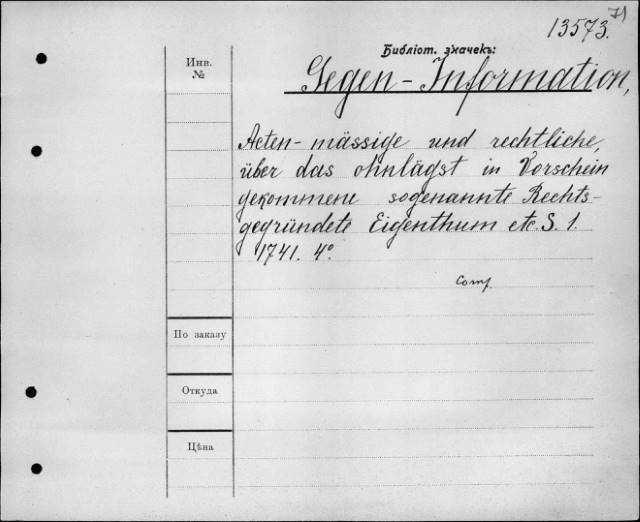 71
13573.
Библіот. значекъ:
Инв.
№
Gegen-Information,
Acten-mässige und rechtliche,
über das ohnlägst in Vorschein
gekommene sogenannte Rechts-
gegründete Eigenthum etc. S. 1.
1741. 4º.
Comp.
По заказу
Откуда
Цѣна